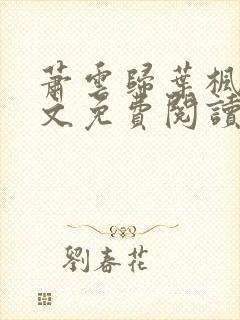 蕭雲歸葉楓
文免費閱讀
劉春花